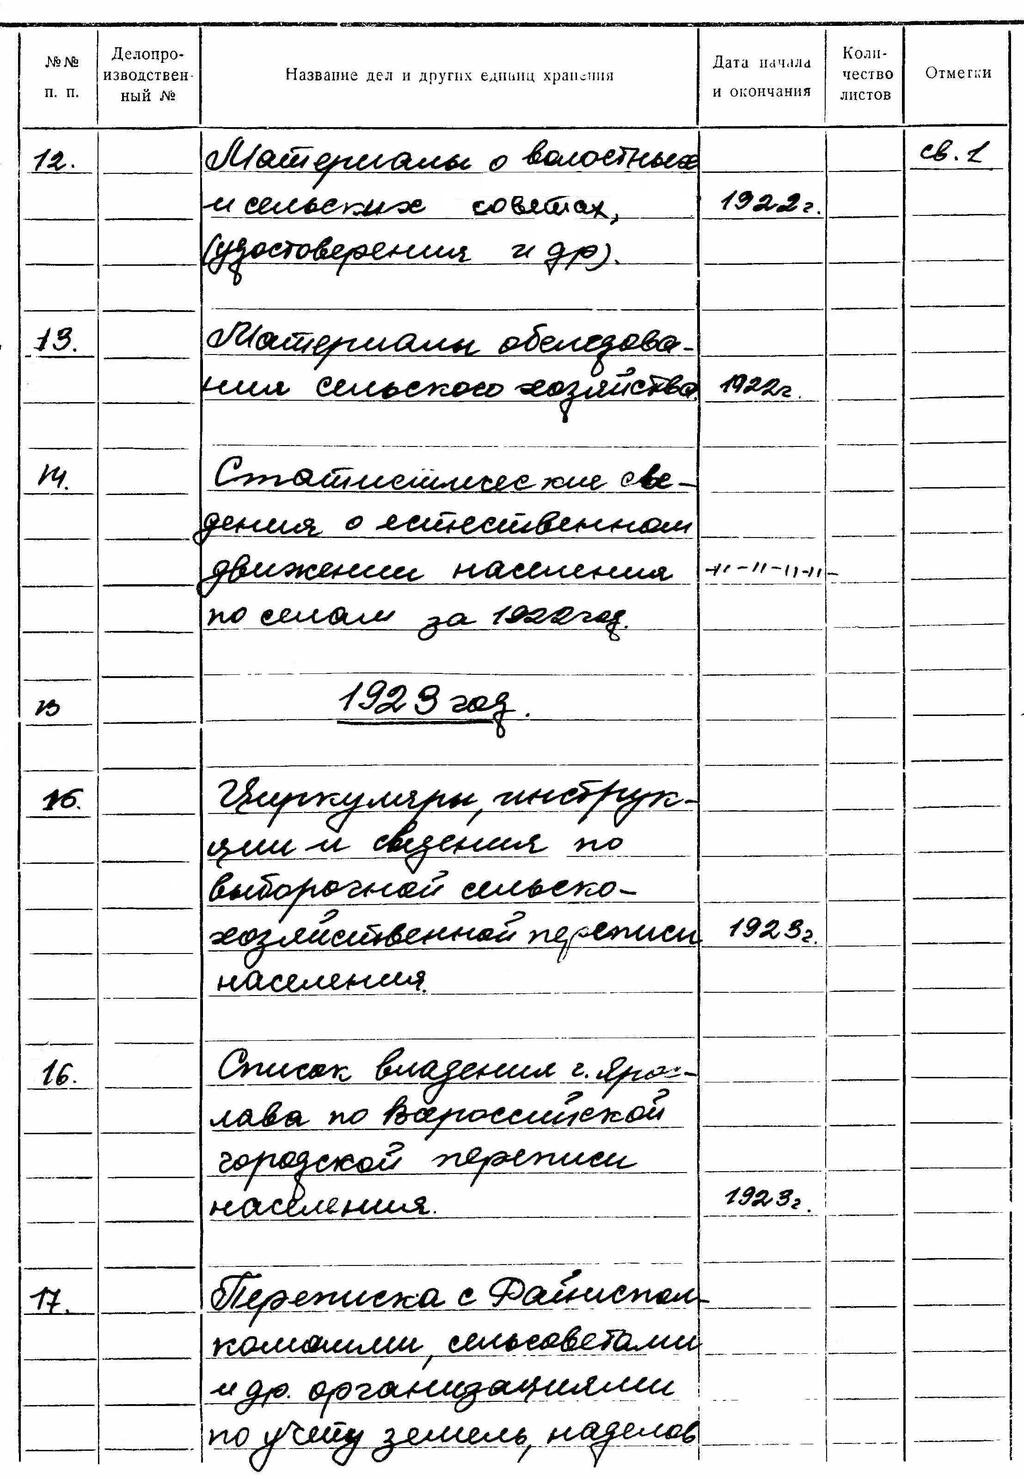 №№ п. п.
Делопро-
изводствен-
ный №
Название дел и других единиц хранения
Дата начала
и окончания
Коли-
чество
листов
Отметки
12. Материалы о волостных св. 1
и сельских советах, 1922 г.
(удостоверения и др).
13. Материалы обследова-
ния сельского хозяйства. 1922 г.
14. Статистические све-
дения о естественном
движении населения -"-"-"-"-
по селам за 1922 год.
13 1923 год.
16. Циркуляры, инструк-
ции и сведения по
выборочной сельско-
хозяйственной переписи 1923 г.
населения.
16. Список владения г. Ярос-
лава по Всероссийской
городской переписи
населения. 1923 г.
17. Переписка с Райиспол-
комами, сельсоветами
и др. организациями
по учёту земель, наделов